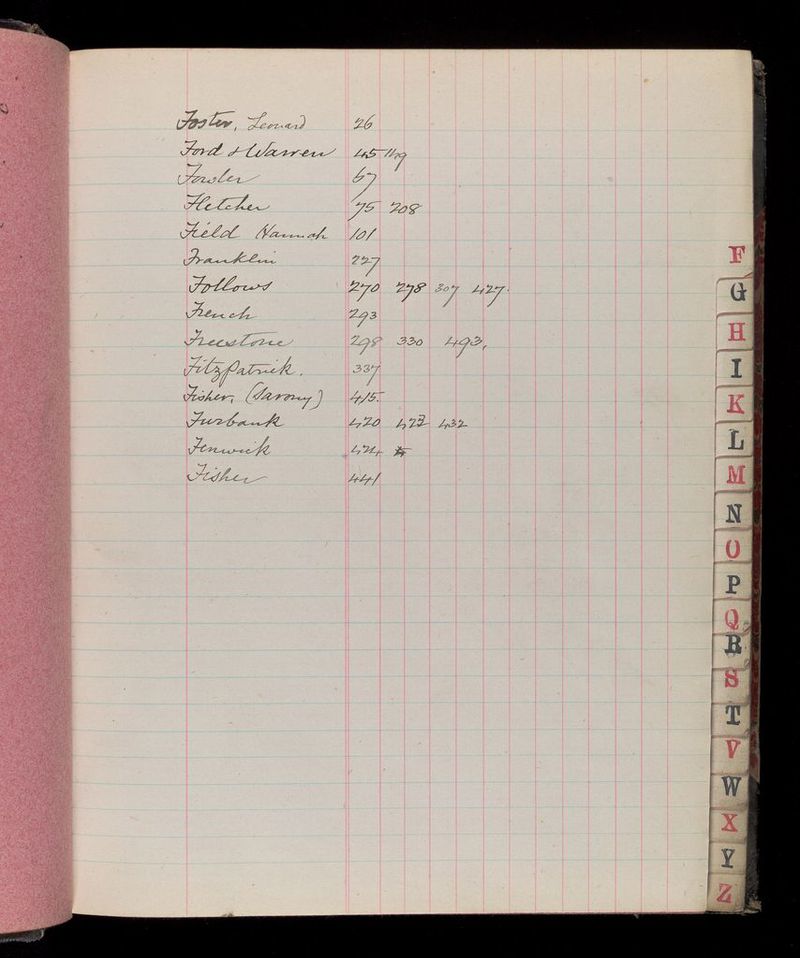 Foster, Leonard 26
Ford & Warren 45 149
Fowler 67
Fletcher 75 208
Field Hannah 101
Franklin 227
Follows 270 278 307 427.
French 293
Freestone 298 330 493.
Fitzpatrick. 337
Fisher, (Savony) 415.
Furbank 420 422 432
Fenwick 424
Fisher 441
F
G
H
I
K
L
M
N
O
P
Q
R
S
T
V
W
X
Y
Z